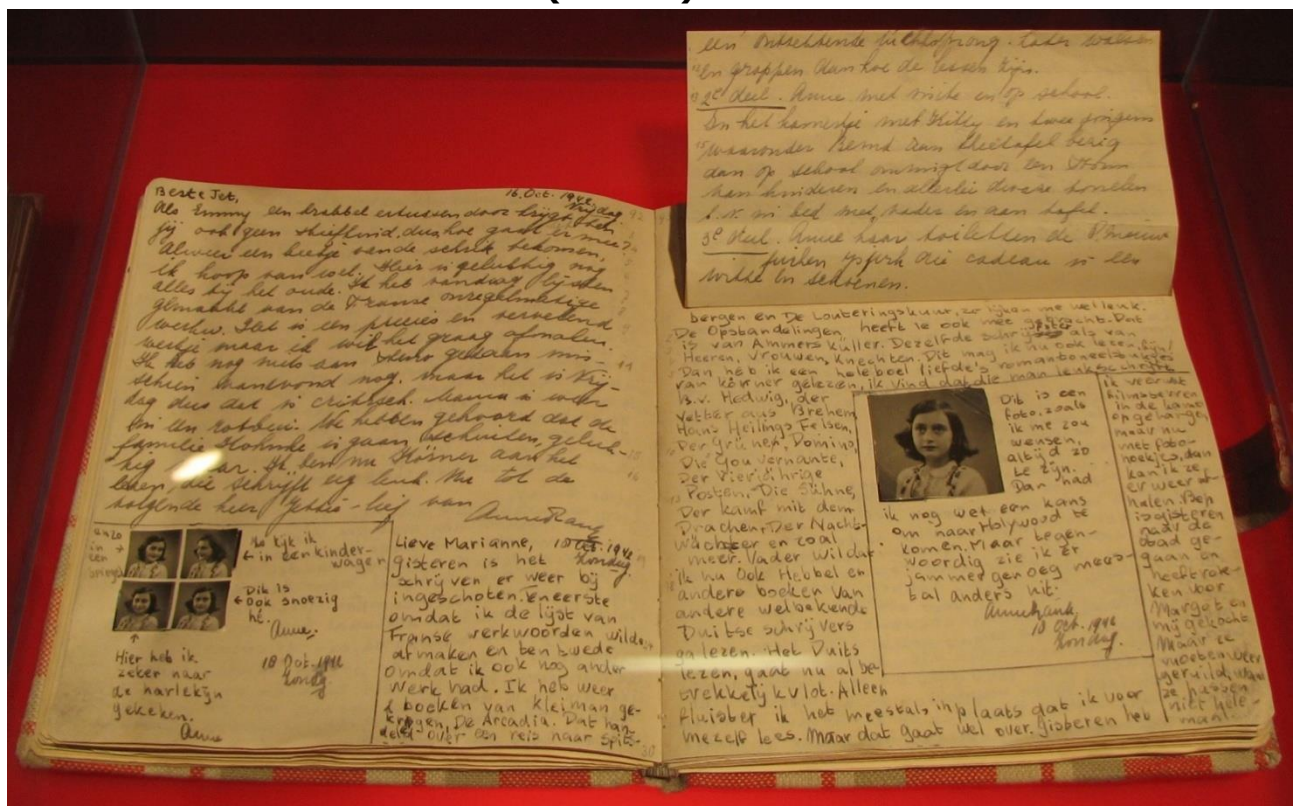 Beste Jet, 16. Oct. 1942
Vrijdag
Als Emmy een krabbel ertussen door krijgt, ben
jij ook geen stiefkind, dus hoe gaat er mee?
Alweer een beetje van de schrik bekomen,
ik hoop van wel. Hier is gelukkig nog
alles bij het oude. Ik heb vandaag lijsten
gemaakt van de Franse onregelmatige
werkw. Het is een precies en vervelend
werkje maar ik wil het graag afmaken.
Ik heb nog niets aan steno gedaan mis-
schien vanavond nog, maar het is Vrij-
dag dus dat is critisch. Mama is weer
in en We hebben gehoord dat de
familie is gaan geluk-
kig maar. Ik ben nu Körner aan het
lezen, die schrijft erg leuk. Nu tot de
volgende keer Jettie-lief van
Anne Frank
in
een
Zo kijk ik
in een kinder-
wagen
Dit is
ook snoezig
hé.
Anne.
Hier heb ik
zeker naar
de harlekijn
gekeken.
Anne
18 Oct. 1942
Zondag
Lieve Marianne, 18 Oct. 1942
Zondag.
Gisteren is het
schrijven er weer bij
ingeschoten. Eneerste
omdat ik de lijst van
Franse werkwoorden wilde
afmaken en ten twede
omdat ik ook nog ander
werk had. Ik heb weer
2 boeken van Kleiman ge-
kregen, De Arcadia. Dat han-
deld over een reis naar Spits-
30
een ontzettende
en grappen dan hoe de
2e deel. Anne met witte en op school.
In het kamertje met Kitty en twee jongens
waaronder Bernd aan theetafel bezig
dan op school omringd door een
van kinderen en allerlei diverse
b.v. in bed met vader en aan tafel.
3e deel. Anne haar toiletten de
cadeau is een
witte en schoenen.
bergen en De Louteringskuur, ze lijken me wel leuk.
De Opstandelingen heeft ie ook mee gebracht. Dat
is van Ammers Küller. Dezelfde schrijfster als van
Heeren, Vrouwen, Knechten. Dit mag ik nu ook lezen, fijn!
Dan heb ik een heleboel liefde's romantoneelstukjes
van Körner gelezen, ik vind dat die man leuk schrijft.
B.v. Hedwig, der
Vetter aus Brehem,
Hans Heilings Felsen,
Der Grüner, Domino,
Die Gouvernante,
Der Vierjährige
Posten, Die Sühne,
Der Kamf mit dem
Drachen, Der Nacht-
wächter en zoal
meer. Vader wil dat
ik nu ook Hebbel en
andere boeken van
andere welbekende
Duitse schrijvers
ga lezen. Het Duits
lezen, gaat nu al be-
trekkelijk vlot. Alleen
fluister ik het meestal inplaats dat ik voor
mezelf lees. Maar dat gaat wel over. Gisteren heb
Dit is een
foto, zoals
ik me zou
wensen,
altijd zo
te zijn.
Dan had
ik nog wel een kans
om naar Holywood te
komen. Maar tegen-
woordig zie ik er
jammer genoeg mees-
tal anders uit.
Anne Frank.
18 Oct. 1942
Zondag.
ik weer wat
filmsterren
in de kamer
opgehangen,
maar nu
met foto-
hoekjes, dan
kan ik ze
er weer af-
halen. Bep
is gisteren
naar de
stad ge-
gaan en
heeft rok-
ken voor
Margot en
mij gekocht.
Maar ze
moeten weer
geruild, want
ze passen
niet hele-
maal.